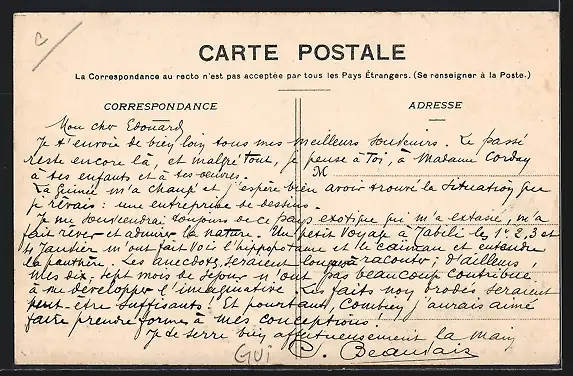 CARTE POSTALE
La Correspondance au recto n'est pas acceptée par tous les Pays Étrangers. (Se renseigner à la Poste.)
CORRESPONDANCE
ADRESSE
Mon cher Edouard
Je t'envoie de bien loin tous mes meilleurs souvenirs. Le passé
reste encore là, et malgré tout, je pense à Toi, à Madame Corday
M
à tes enfants et à tes oeuvres.
La Guinée m'a changé et j'espère bien avoir trouvé la situation que
je rêvais : une entreprise de dessins.
Je me souviendrai toujours de ce pays exotique qui m'a extasié, m'a
fait rêver et admirer la nature. Un petit voyage à les 1er 2, 3 et
4 Janvier m'ont fait voir l'hippopotame et le caïman et entendre
la panthère. Les anecdotes seraient longues à raconter ; d'ailleurs
mes dix-sept mois de séjour n'ont pas beaucoup contribué
à me développer l'imaginative. Les faits non brodés seraient
peut-être suffisants ! Et pourtant, Combien j'aurais aimé
faire prendre forme à mes conceptions !
Je te serre bien affectueusement la main
Beauvais
GUI